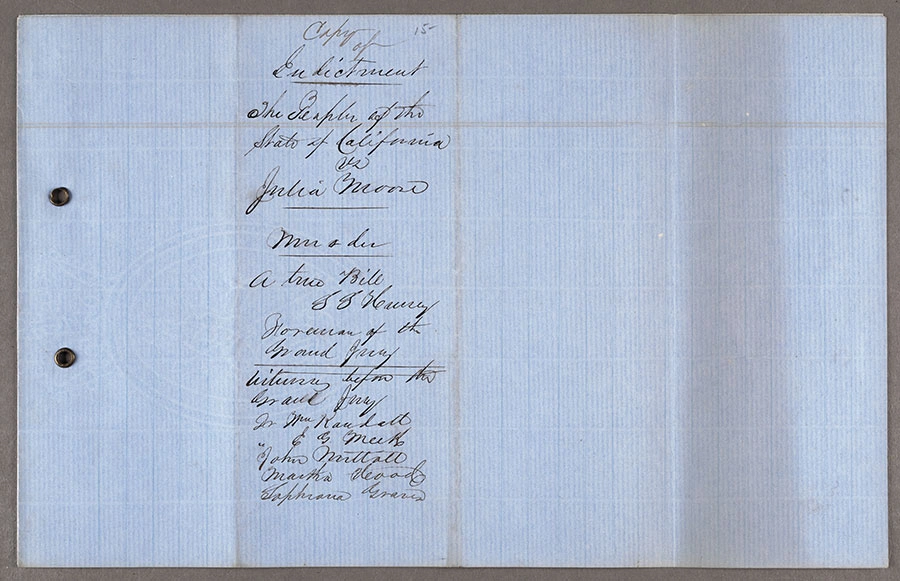 Copy 15
of
Indictment
The People of the
State of California
vs
Julia Moore
Murder
A true Bill
S S
Foreman of the
Grand Jury
Witnesses before the
Grand Jury
Dr Wm Randall
" E G Meek
" John Nuttall
Martha Wood
Sophrana Graves